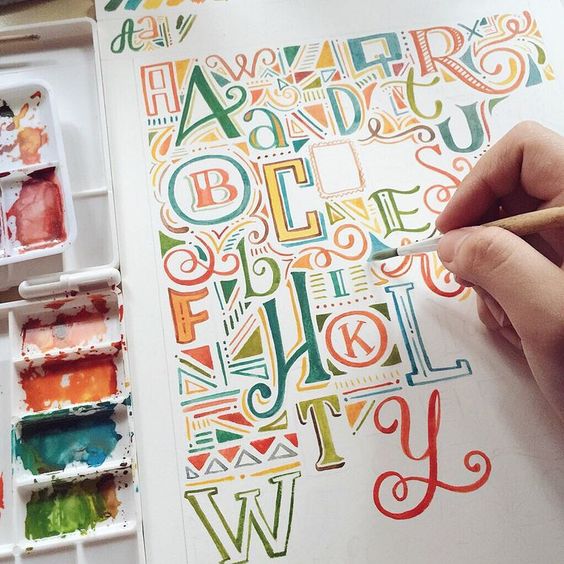 Aa
A W Q R
A a D i t U
B C
N E S
b
F I
H K L
T Y
W